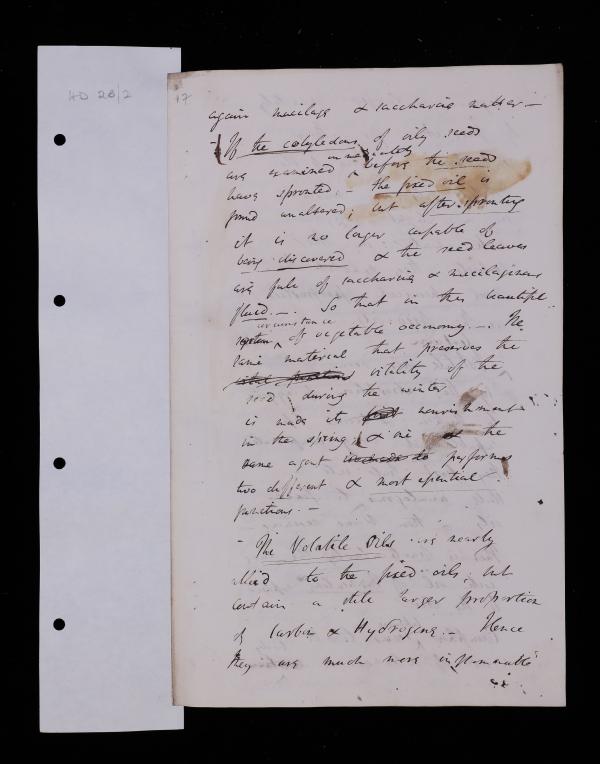 HD 26/2
17
again mucilage & saccharine matter —
- If the cotyledons of oily seeds
are examined immediately before the seed
have sprouted, - the fixed oil is
found unaltered; but after sprouting
it is no longer capable of
being discovered & the seed leaves
are full of saccharine & mucilaginous
fluid. —. So that in this beautiful
circumstance
of vegetable oeconomy. — The
same material that preserves the
vital vitality of the
seed during the winter
is made its nourishment
in the spring, & one & the
same agent performs
two different & most essential
functions. —
- The Volatile Oils are nearly
allied to the fixed oils, but
contain a still larger proportion
of Carbon & Hydrogene. — Hence
they are much more inflammable